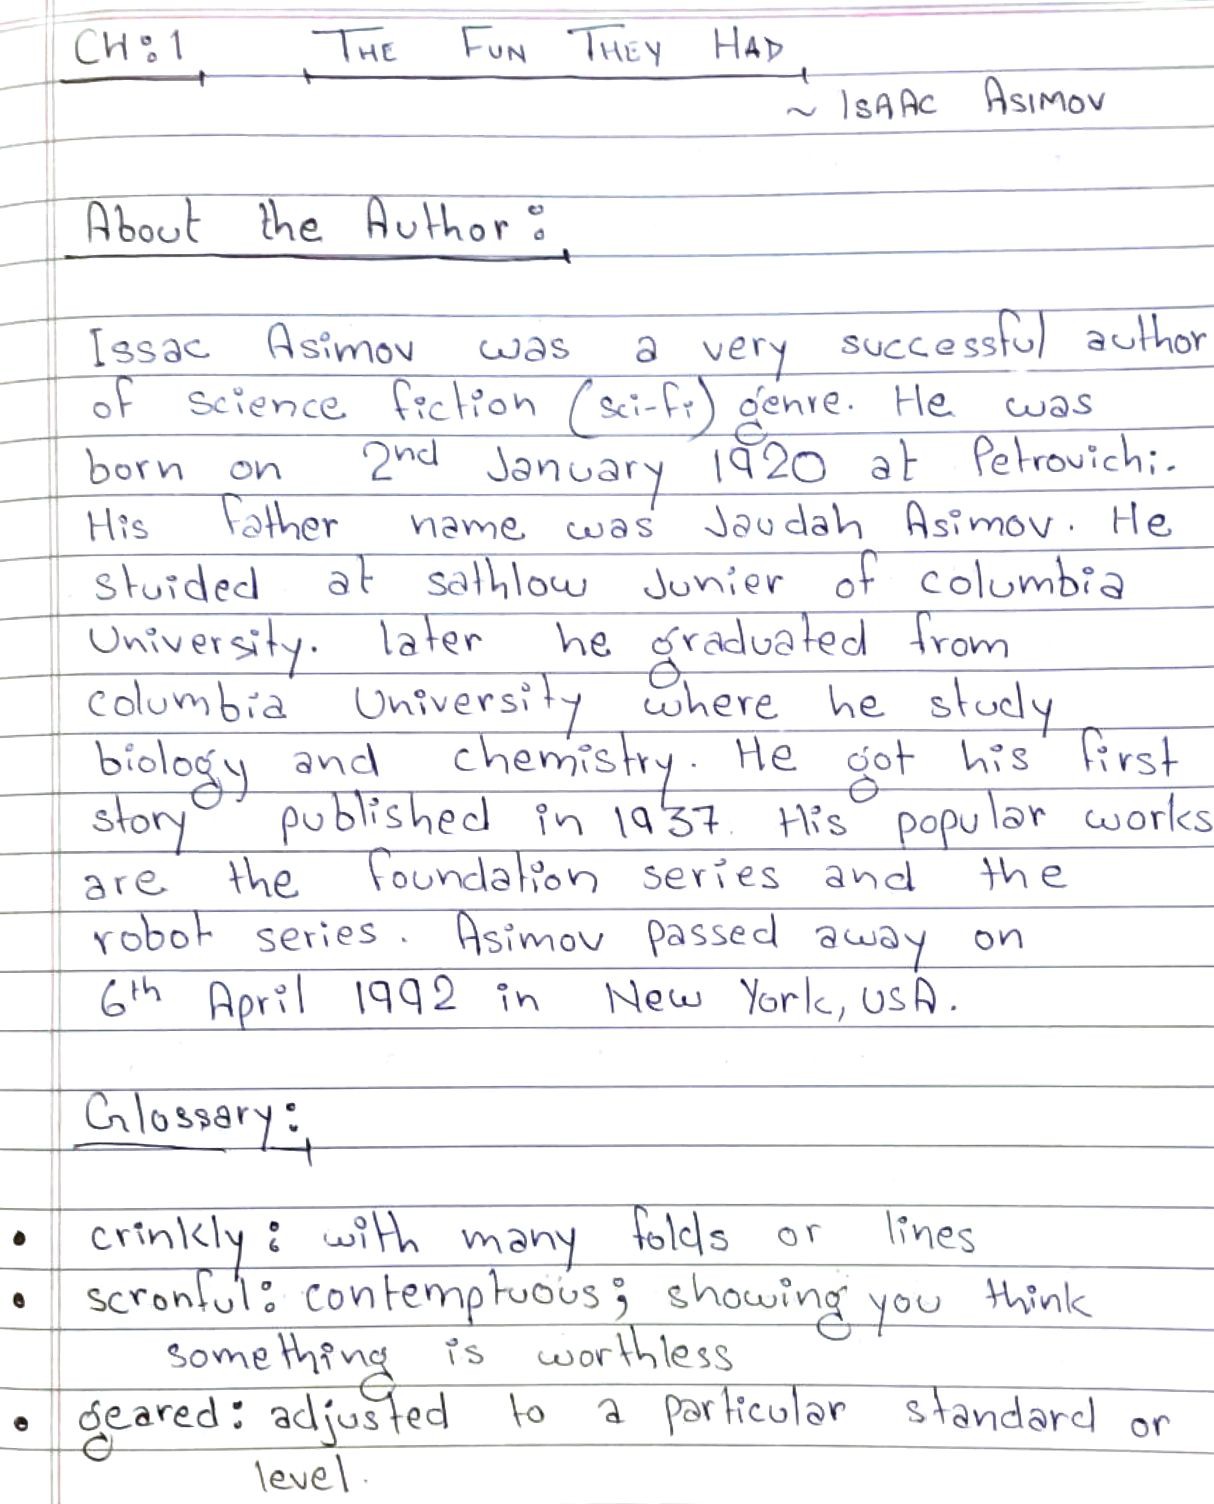 CH:1 THE FUN THEY HAD
~ ISAAC ASIMOV
About the Author:
Issac Asimov was a very successful author
of science fiction (sci-fi) genre. He was
born on 2nd January 1920 at Petrovichi.
His father name was Jaudah Asimov. He
stuided at sathlow Junier of columbia
University. later he graduated from
columbia University where he study
biology and chemistry. He got his first
story published in 1937. His popular works
are the foundation series and the
robot series. Asimov passed away on
6th April 1992 in New York, USA.
Glossary:
• crinkly: with many folds or lines
• scronful: contemptuous; showing you think
something is worthless
• geared: adjusted to a particular standard or
level.